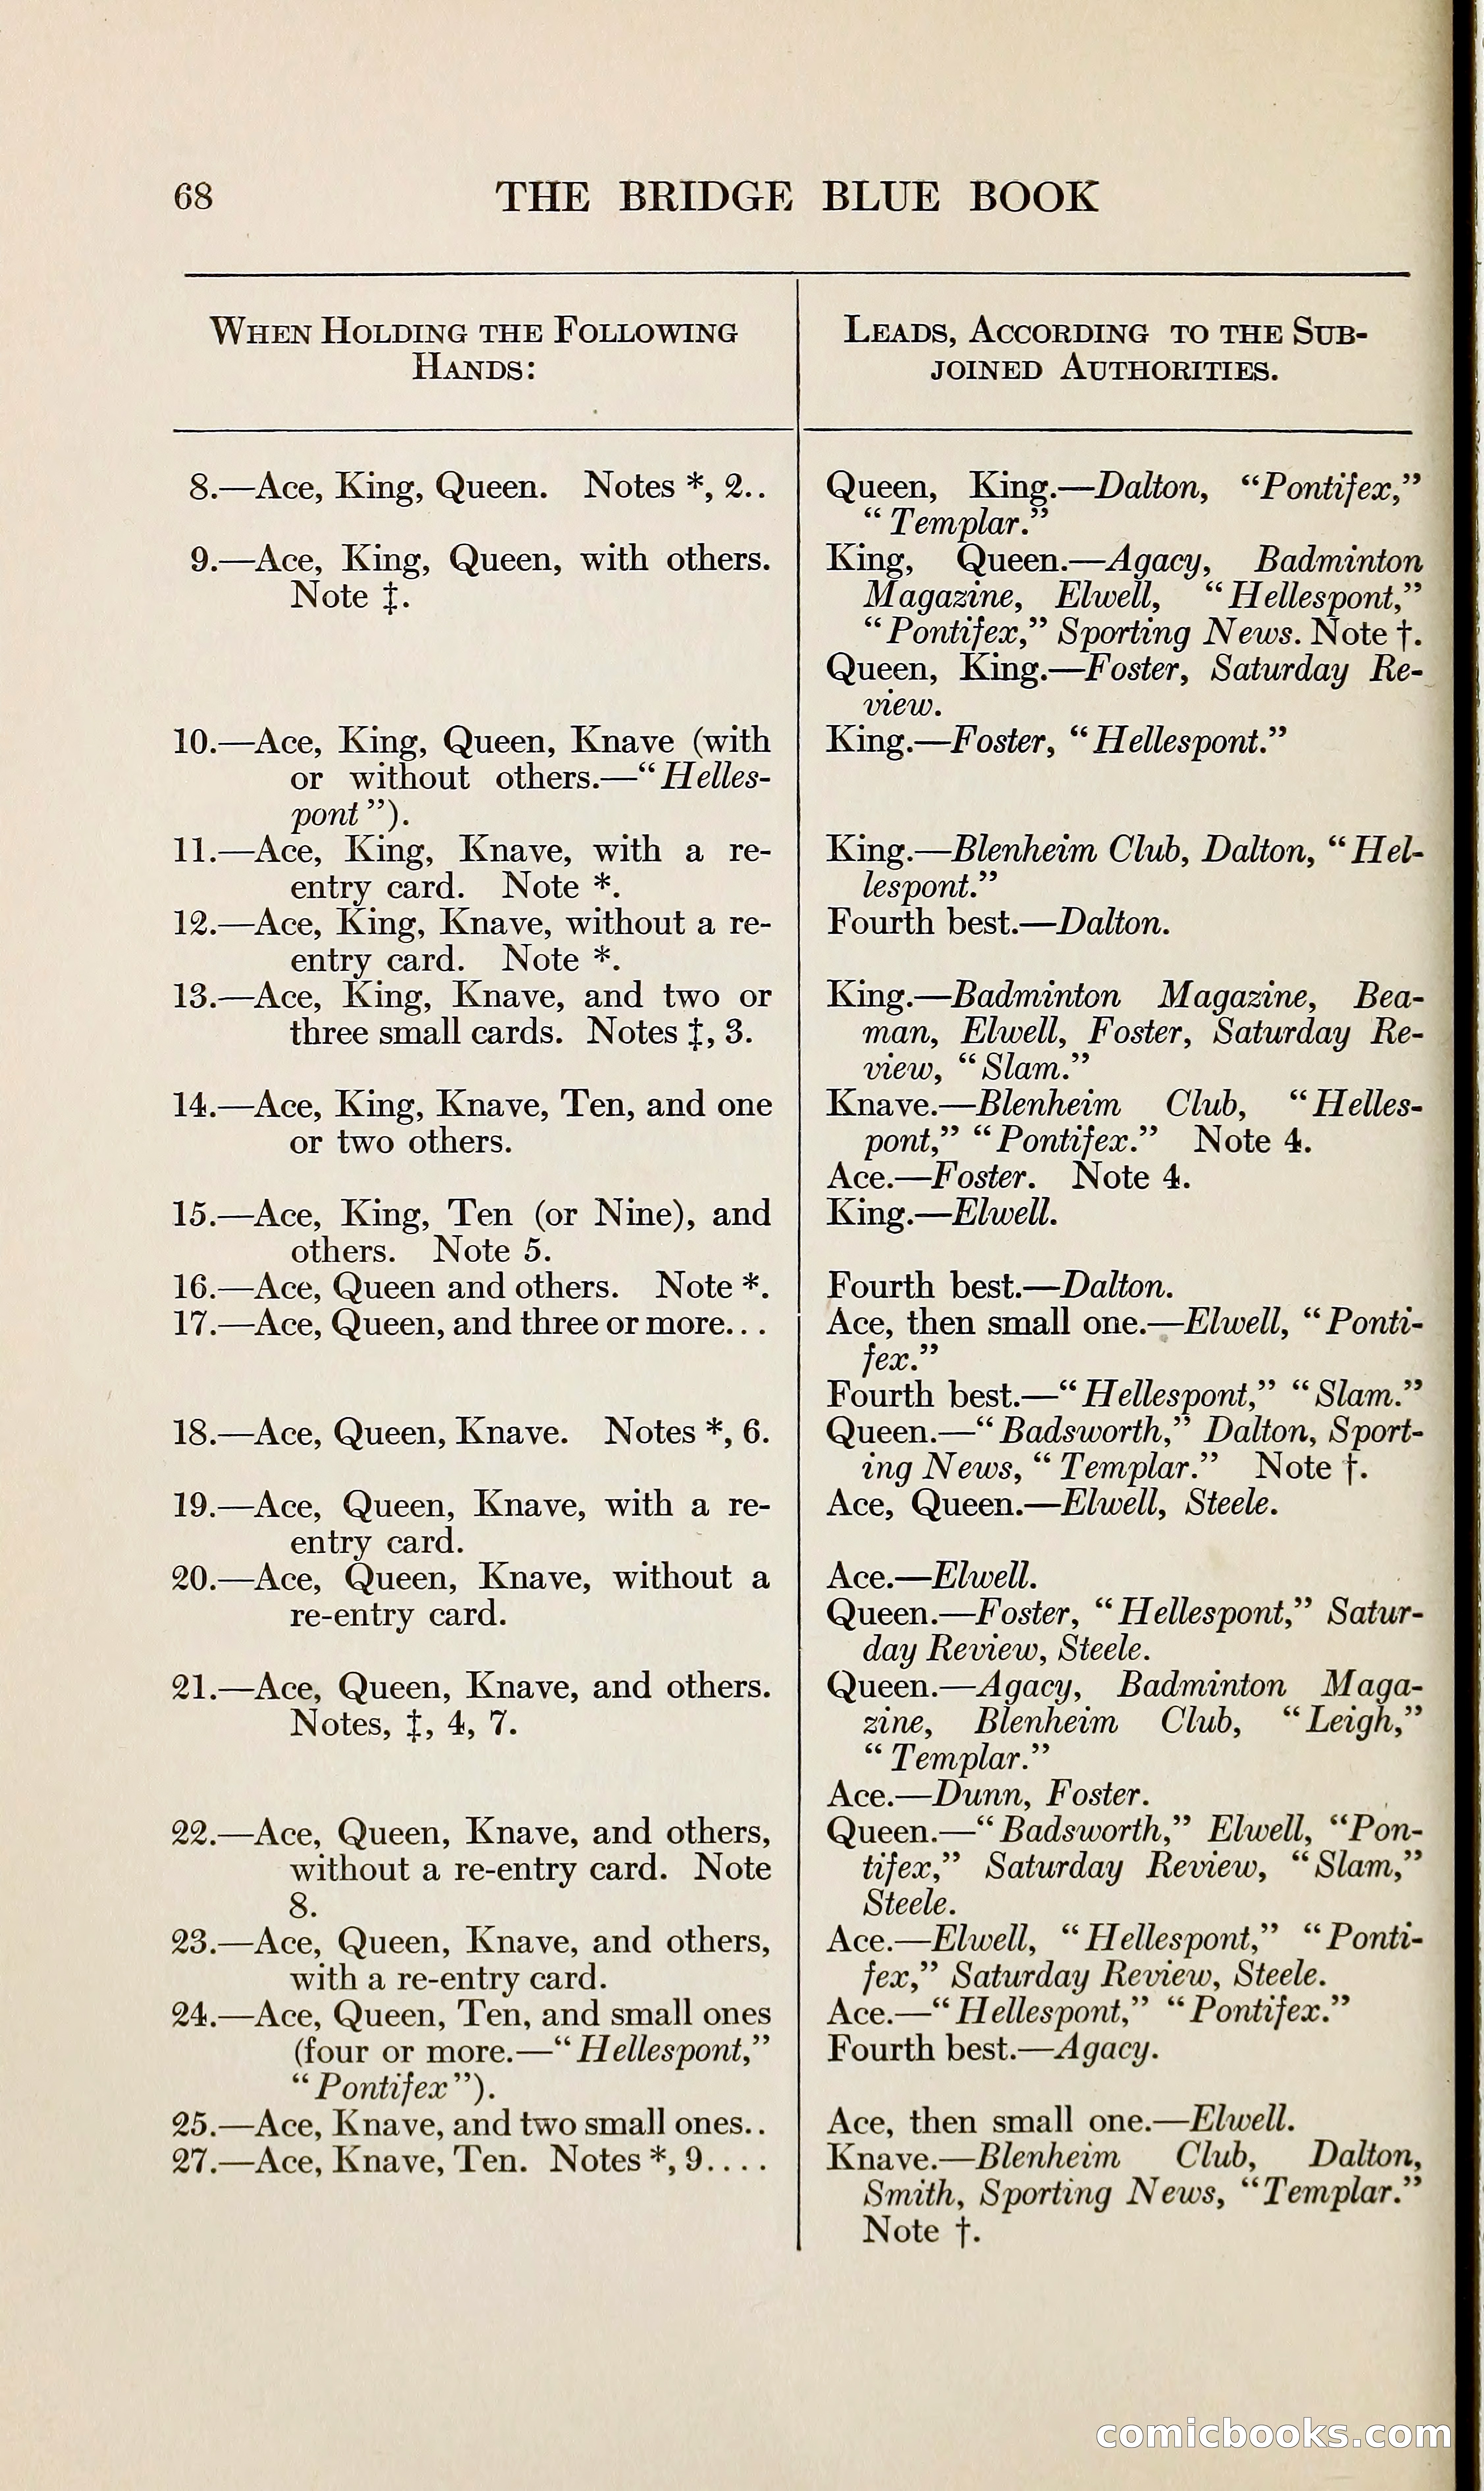 68 THE BRIDGE BLUE BOOK
When Holding the Following
Hands:
Leads, According to the Sub-
joined Authorities.
8.—Ace, King, Queen. Notes *, 2..
Queen, King.—Dalton, “Pontifex,”
“Templar.”
9.—Ace, King, Queen, with others.
Note ‡.
King, Queen.—Agacy, Badminton
Magazine, Elwell, “Hellespont,”
“Pontifex,” Sporting News. Note †.
Queen, King.—Foster, Saturday Re-
view.
10.—Ace, King, Queen, Knave (with
or without others.—“Helles-
pont”).
King.—Foster, “Hellespont.”
11.—Ace, King, Knave, with a re-
entry card. Note *.
King.—Blenheim Club, Dalton, “Hel-
lespont.”
12.—Ace, King, Knave, without a re-
entry card. Note *.
Fourth best.—Dalton.
13.—Ace, King, Knave, and two or
three small cards. Notes ‡, 3.
King.—Badminton Magazine, Bea-
man, Elwell, Foster, Saturday Re-
view, “Slam.”
14.—Ace, King, Knave, Ten, and one
or two others.
Knave.—Blenheim Club, “Helles-
pont,” “Pontifex.” Note 4.
Ace.—Foster. Note 4.
15.—Ace, King, Ten (or Nine), and
others. Note 5.
King.—Elwell.
16.—Ace, Queen and others. Note *.
Fourth best.—Dalton.
17.—Ace, Queen, and three or more...
Ace, then small one.—Elwell, “Ponti-
fex.”
Fourth best.—“Hellespont,” “Slam.”
18.—Ace, Queen, Knave. Notes *, 6.
Queen.—“Badsworth,” Dalton, Sport-
ing News, “Templar.” Note †.
19.—Ace, Queen, Knave, with a re-
entry card.
Ace, Queen.—Elwell, Steele.
20.—Ace, Queen, Knave, without a
re-entry card.
Ace.—Elwell.
Queen.—Foster, “Hellespont,” Satur-
day Review, Steele.
21.—Ace, Queen, Knave, and others.
Notes, ‡, 4, 7.
Queen.—Agacy, Badminton Maga-
zine, Blenheim Club, “Leigh,”
“Templar.”
Ace.—Dunn, Foster.
22.—Ace, Queen, Knave, and others,
without a re-entry card. Note
8.
Queen.—“Badsworth,” Elwell, “Pon-
tifex,” Saturday Review, “Slam,”
Steele.
23.—Ace, Queen, Knave, and others,
with a re-entry card.
Ace.—Elwell, “Hellespont,” “Ponti-
fex,” Saturday Review, Steele.
24.—Ace, Queen, Ten, and small ones
(four or more.—“Hellespont,”
“Pontifex”).
Ace.—“Hellespont,” “Pontifex.”
Fourth best.—Agacy.
25.—Ace, Knave, and two small ones..
Ace, then small one.—Elwell.
27.—Ace, Knave, Ten. Notes *, 9....
Knave.—Blenheim Club, Dalton,
Smith, Sporting News, “Templar.”
Note †.
comicbooks.com